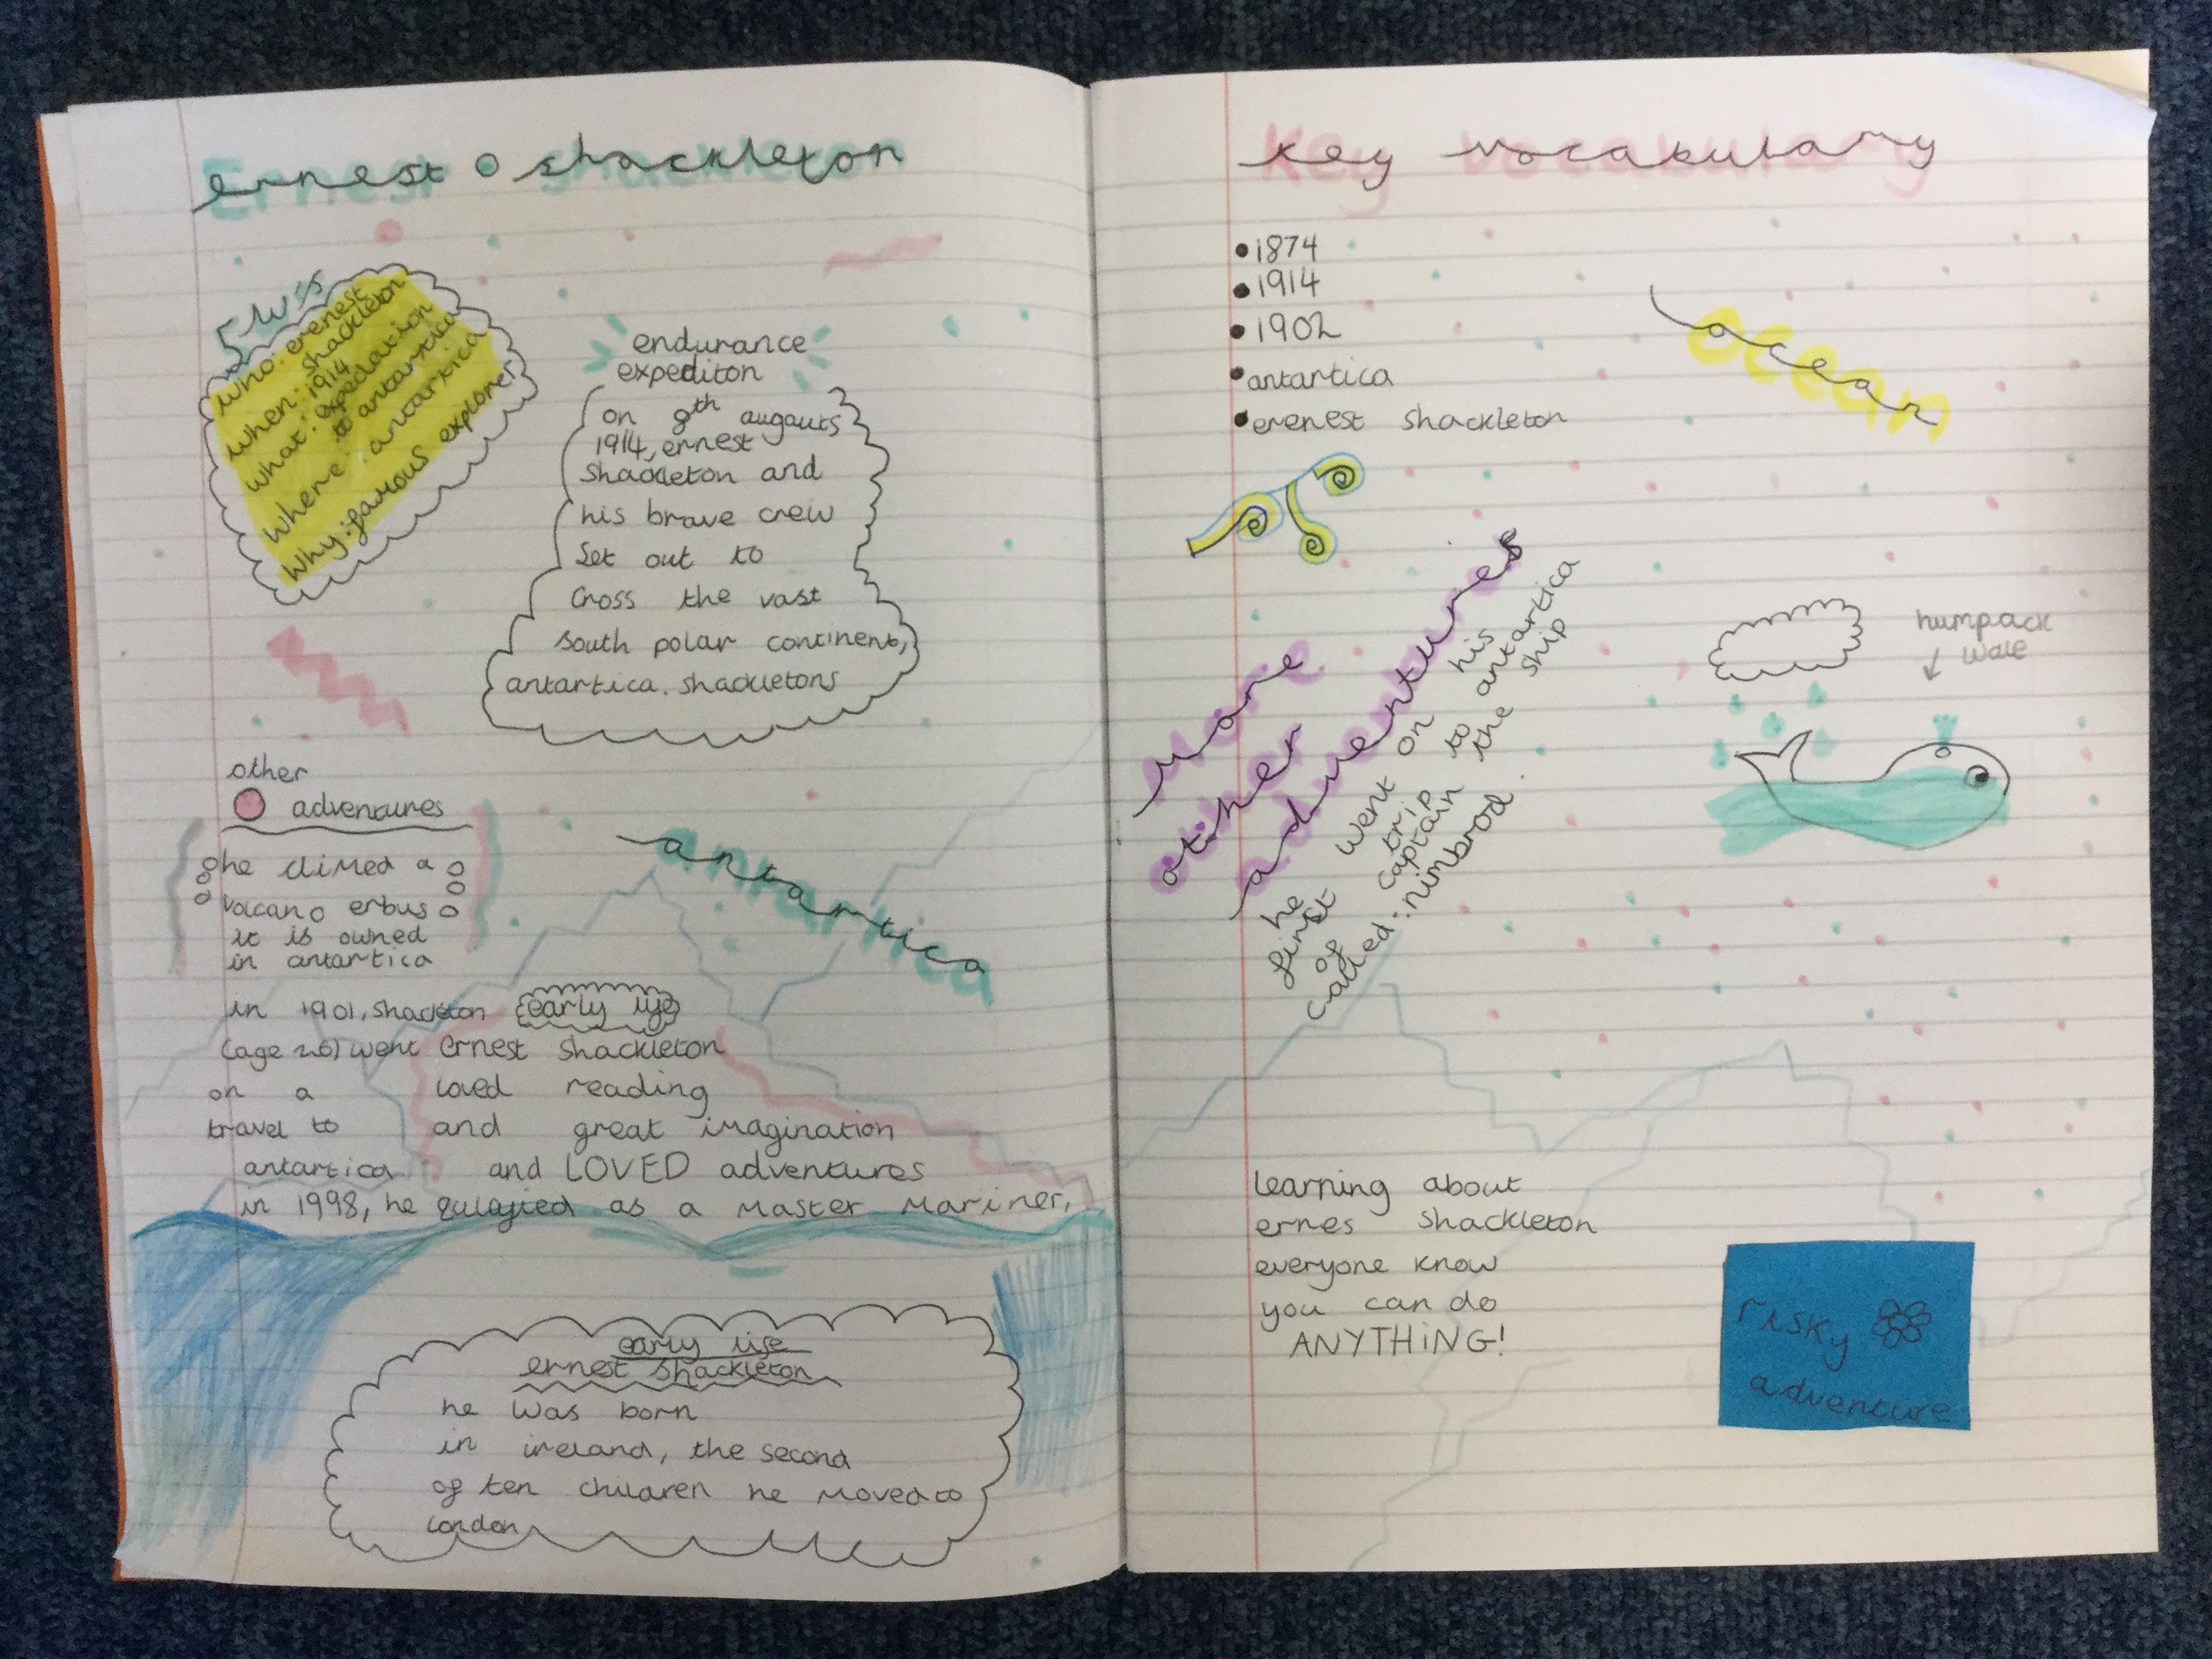 ernest shackleton
5 W's
who: erenest
shackleton
when: 1914
what: expedation
to antartica
where: antartica
why: famous explorer
endurance
expediton
on 8th augauts
1914, ernest
Shackleton and
his brave crew
Set out to
Cross the vast
south polar continent,
antartica. shackletons
other
adventures
he climed a
volcano erbus
it is owned
in antartica
antartica
in 1901, Shackleton
(age 26) went
on a
travel to
antartica
early life
Ernest Shackleton
loved reading
and great imagination
and LOVED adventures
in 1998, he qulafied as a Master Mariner,
early life
ernest shackleton
he was born
in ireland, the second
of ten children he moved to
london
Key vocabulary
1874
1914
1902
antartica
erenest shackleton
ocean
More
other
adventures
he went on his
first trip to antartica
of captain the ship
called: nimbrod.
humpack
wale
learning about
ernes shackleton
everyone know
you can do
ANYTHING!
risky
adventure